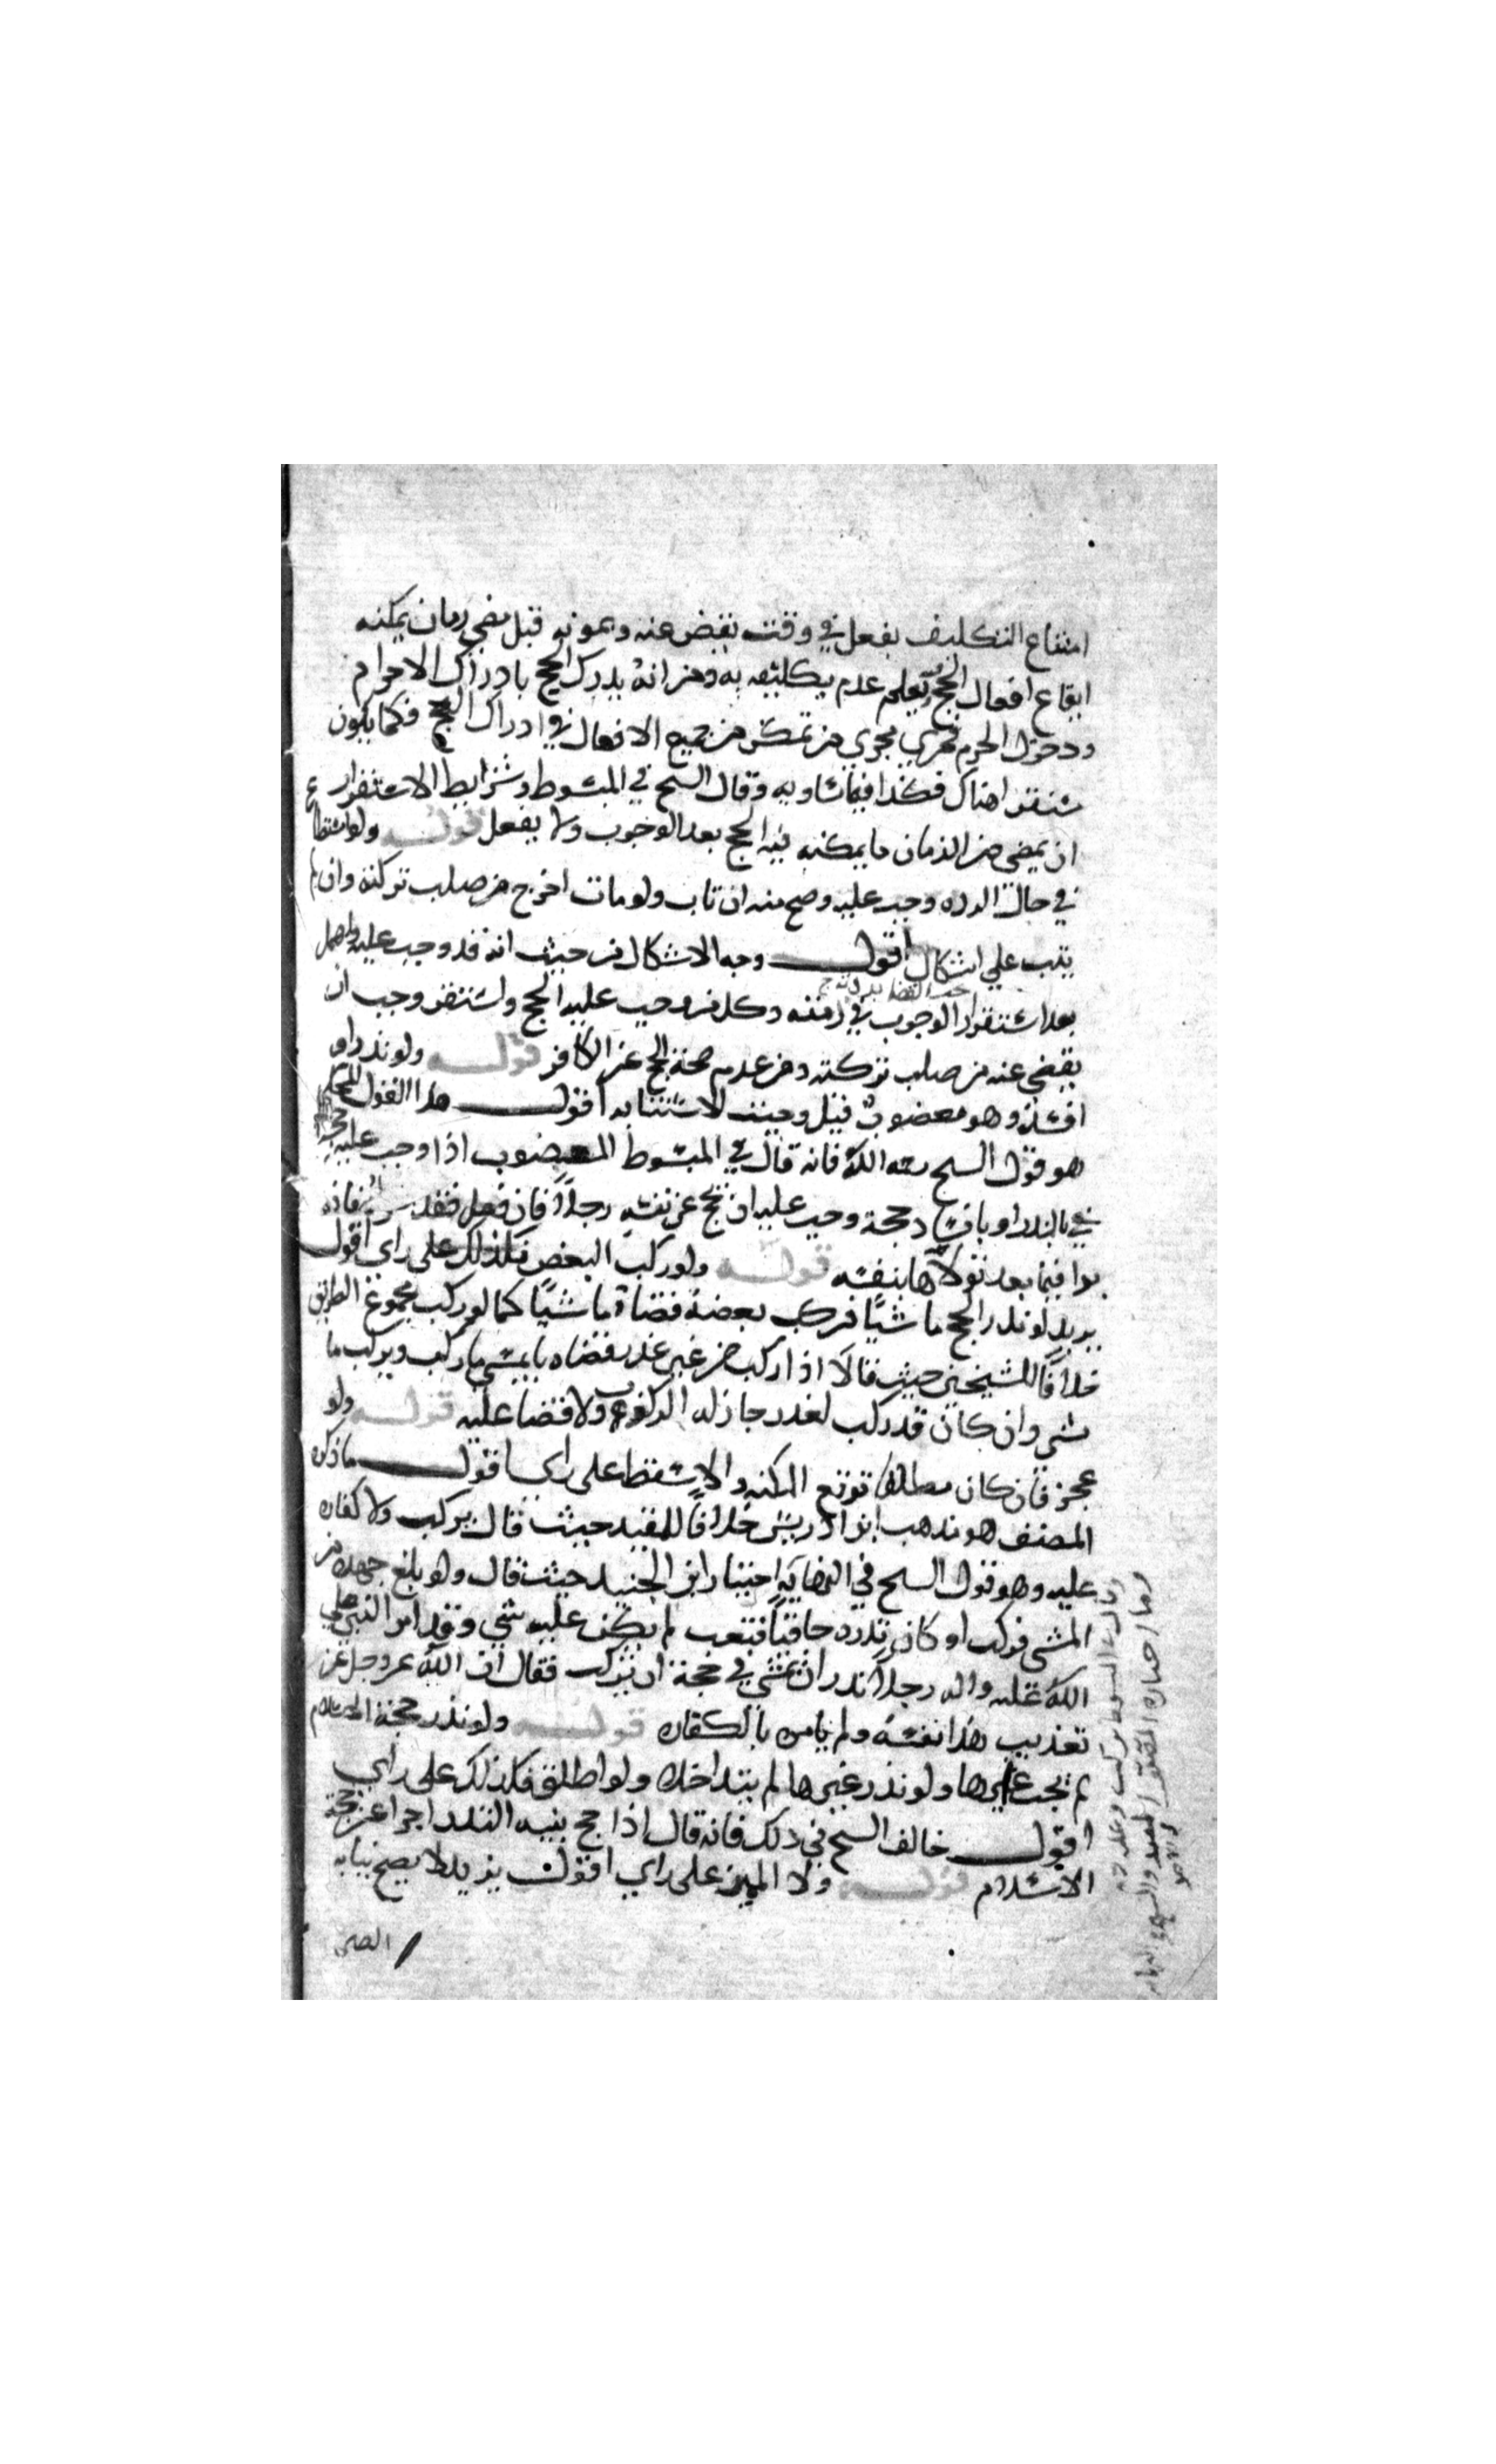 امتناع التكليف بفعل في وقت يقبض عنه وبموته قبل مضي زمان يمكنه
ايقاع افعال الحج فيه يعلم عدم تكليفه به ومن انه يدرك الحج بادراك الاحرام
ودخول الحرم فجرى مجرى من تمكن من جميع الافعال في ادراك الحج فكما يكون
مستقرا هناك فكذا فيما يساويه وقال الشيخ في المبسوط وشرايط الاستقرار
ان يمضي من الزمان ما يمكنه فيه الحج بعد الوجوب ولا يفعل قوله ولو استطاع
في حال الرده وجب عليه وصح منه ان تاب ولو مات اخرج من صلب تركته وان لم
يتب على اشكال اقول وجه الاشكال من حيث انه قد وجب عليه واهمل
بعد استقرار الوجوب في ذمته وكل من وجب عليه الحج واستقر وجب ان
يقضى عنه من صلب تركته ومن عدم صحة الحج عن الكافر قوله ولو نذر او
افسد وهو معضوب قيل وجبت الاستنابه اقول هذا القول المحكي
هو قول الشيخ رحمه الله فانه قال في المبسوط المعضوب اذا وجب عليه حجة
بالنذر او بافساد حجة وجب عليه ان يحج عن نفسه رجلا فان فعل فقد فان
برا فيما بعد تولاها بنفسه قوله ولو ركب البعض فكذلك على راي اقول
يريد لو نذر الحج ماشيا فركب بعضه قضاه ماشيا كما لو ركب مجموع الطريق
خلافا للشيخين حيث قالا اذا ركب من غير عذر قضاه يمشي ما ركب ويركب ما
مشى وان كان قد ركب لعذر جاز له الركوب ولا قضا عليه قوله ولو
عجز فان كان مطلقا توقع المكنه والا سقط على راي اقول ما ذكره
المصنف هو مذهب ابن ادريس خلافا للمفيد حيث قال يركب ولا كفاره
عليه وهو قول الشيخ في النهايه وابن الجنيد حيث قال ولو بلغ جهده من
المشي فركب او كان نذره حافيا فتعب لم يكن عليه شي وقد امر النبي صلى
الله عليه واله رجلا نذر ان يمشي في حجة ان يركب فقال ان الله عز وجل عن
تعذيب هذا نفسه ولم يامره بالكفاره قوله ولو نذر حجة الاسلام
لم يجب غيرها ولو نذر غيرها لم يتداخلا ولو اطلق فكذلك على راي
اقول خالف الشيخ في ذلك فانه قال اذا حج بنيه النذر اجزا عن حجة
الاسلام قوله ولا المميز على راي اقول يريد لا يصح نيابه
الصبي